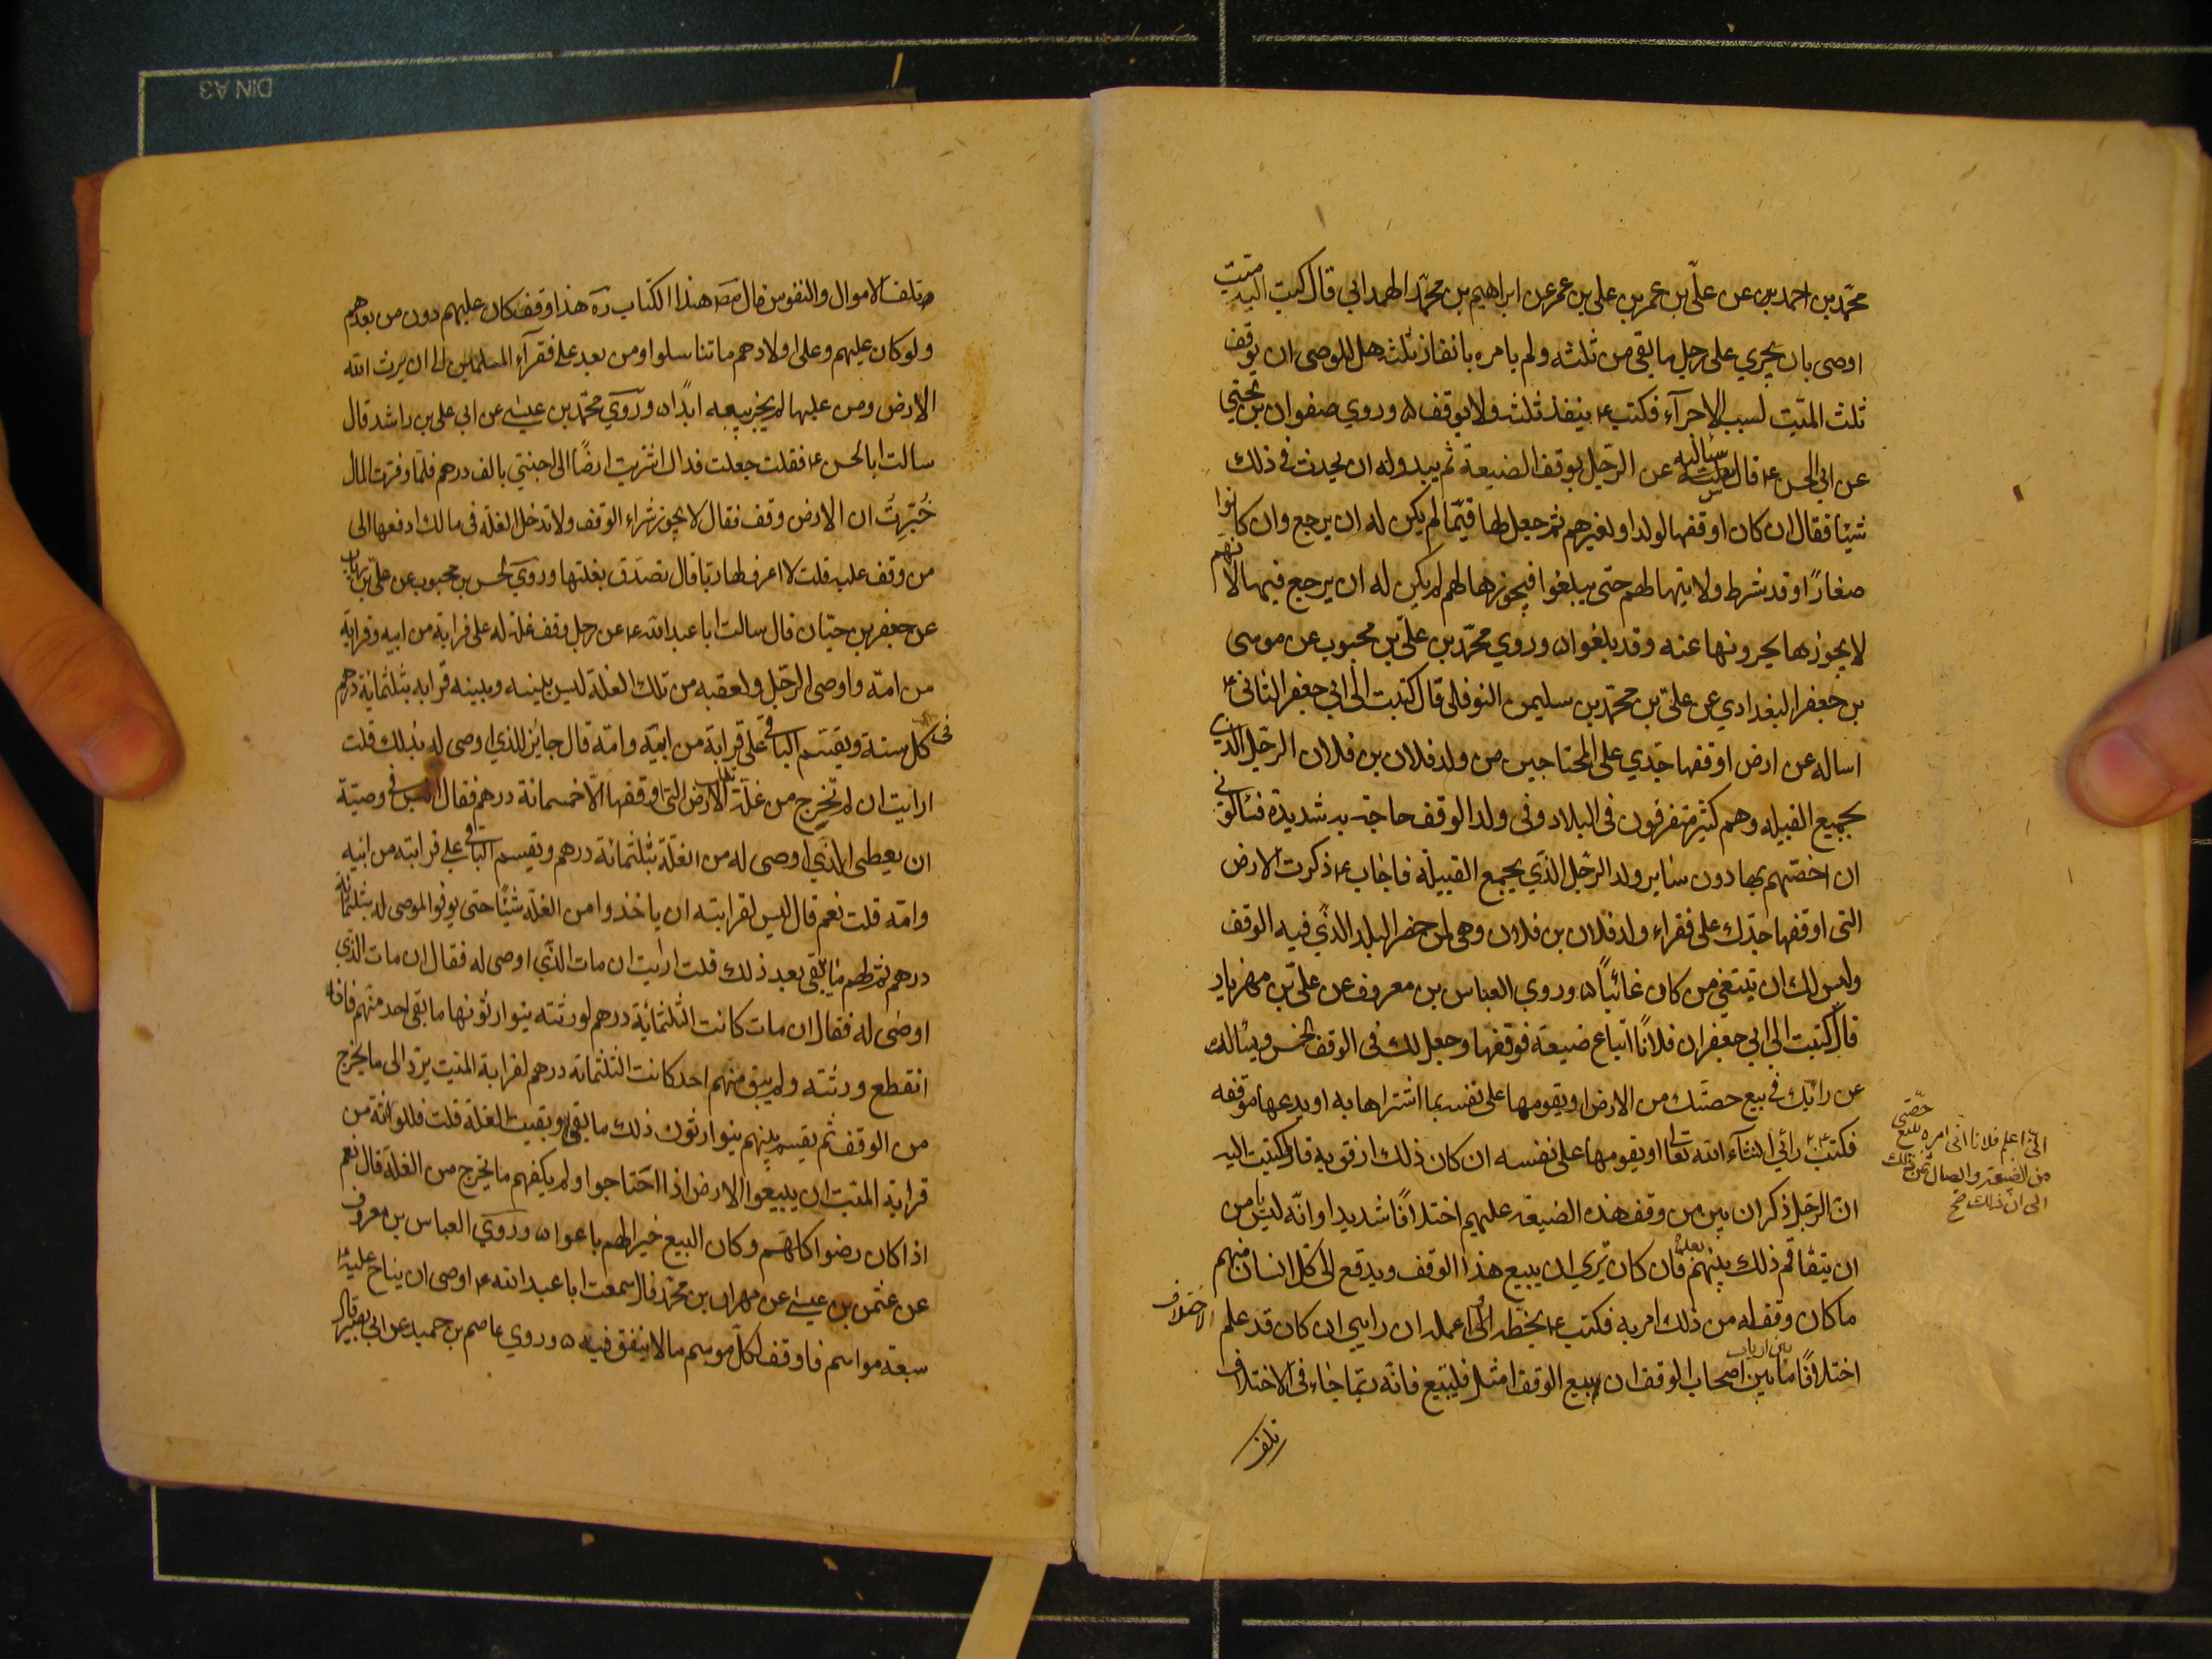 محمّد بن احمد بن عن علّي بن عمر بن علي بن عمر عن ابراهيم بن محمّد الهمداني قال كتبت اليه ميّت
اوصى بان يجري على رجل ما بقي من ثلثه ولم يامره بانفاز ثلثه هل للوصى ان يوقف
ثلث الميّت لسبب الاجرآء فكتب ع ينفذ ثلثه ولا يوقف ه وروي صفوان بن يحيى
عن ابي الحسن ع قال سألته عن الرّجل يوقف الضيعة ثم يبدو له ان يحدث في ذلك
شيئا فقال ان كان اوقفها لولده او لغيرهم ثم جعل لها قيّما لم يكن له ان يرجع وان كانوا
صغارًا وقد شرط ولايتها لهم حتى يبلغوا فيجوزها لهم لم يكن له ان يرجع فيها لانّهم
لا يجوزها يحرونها عنه وقد بلغوا ه وروي محمّد بن علّي بن محبوب عن موسى
بن جعفر البغدادي عن علّي بن محمّد بن سليمن النوفلى قال كتبت الى ابي جعفر الثاني ع
اساله عن ارض اوقفها جّدي على المحتاجين من ولد فلان بن فلان الرّجل الذي
يجميع القبيله وهم كثير متفرقون في البلاد وفي ولد الوقف حاجة به شديدة فسئالوني
ان اخصّهم بها دون ساير ولد الرّجل الذّي يجمع القبيلة فاجاب ع ذكرت الارض
التى اوقفها جدّك على فقراء ولد فلان بن فلان وهى لمن حضر البلد الذّي فيه الوقف
وليس لك ان يتبتغي من كان غائبًا ه وروي العباس بن معروف عن علّي بن مهزيار
قال كتبت الى ابي جعفر ان فلانًا ابتاع ضيعة فوقفها وجعل لك في الوقف الخمس ويسئالك
عن رائك في بيع حصتك من الارض او يقومها على نفسه بما اشتراها به او يدعها موقفه
فكتب ع رائي انشآء الله تعا او يقومها على نفسه ان كان ذلك ارفق به قال وكتبت اليه
حصّتى
الىّ اعلم فلانا انى امره ببيع
من الضيعة وايصال ثمن ذلك
الى ان ذلك صح
انّ الرّجل ذكر ان بين من وقف هذه الضيعة عليهم اختلافًا شديدا وانّه ليس يامن
ان يتفاقم ذلك بينهم بعده فان كان تري ان يبيع هذا الوقف ويدفع الى كلّ انسان منهم
ما كان وقف له من ذلك امر به فكتب ع بخطّه الىّ اعمله ان رايي ان كان قد علم الاختلاف
اختلافًا ما بين اصحاب الوقف ان يبيع الوقف امثل فليبيع فانّه ربّما جاء في الاختلاف
بين ارباب
تلف
وتلف الاموال والنفوس قال مص هذا الكتاب ره هذا وقف كان عليهم دون من بعدهم
ولو كان عليهم وعلى اولادهم ما تناسلوا ومن بعد على فقرآء المسلمين الى ان يرث الله
الارض ومن عليها لم يجز بيعه ابدًا ه وروي محمّد بن عيسٰى عن ابي على بن راشد قال
سالت ابا الحسن ع فقلت جعلت فداك اشتريت ارضًا الى اجنبتي بالف درهم فلمّا وفرت المال
خُبّرتُ ان الارض وقف فقال لا يجوز شراء الوقف ولا تدخل الغلّه في مالك ادفعها الى
من وقف عليه قلت لا اعرف لها ربّا قال تصدّق بغلتها وروي الحسن بن محبوب عن علّي بن رياب
عن جعفر بن حيّان قال سالت ابا عبدالله ع عن رجل وقف غلة له على قرابة من ابيه وقرابة
من امّه واوصى الرّجل ولعقبه من تلك الغلّة ليس بينه وبينه قرابه بثلثمانة درهم
في كل سنة ويقسّم الباقي على قرابة من ابيّه وامّه قال جايز للذي اوصى له بذلك قلت
ارايت ان لم تخرج من غلّة تلك الارض التى اوقفها الّا خمسمانة درهم فقال اليس في وصيّة
ان يعطى الذّي اوصى له من الغلّة بثلثمائة درهم ويقسم الباقي على قرابته من ابيه
وامّه قلت نعم قال ليس لقرابته ان ياخذوا من الغلّه شيئًا حتى يوفوا الموصى له بثلثمائة
درهم ثم لهم ما يبقى بعد ذلك قلت ارايت ان مات الذّي اوصى له فقال ان مات الذّي
اوصٰى له فقال ان مات كانت الثلثمائة درهم لورثته يتوارثونها ما بقى احد منهم فاذا
انقطع ورثته ولم يبق منهم احد كانت الثلثمائة درهم لقرابة الميّت يردّ الى ما يخرج
من الوقف ثم يقسم بينهم يتوارثون ذلك ما بقى او بقيت الغلّة قلت فللورثة من
قرابة الميّت ان يبيعوا الارض اذا احتاجوا ولم يكفهم ما يخرج من الغلّة قال نعم
اذا كان رضوا كلهم وكان البيع خيرا لهم باعوا ه وروي العباس بن معروف
عن عثمن بن عيسٰى عن مهران بن محمّد قال سمعت ابا عبدالله ع اوصى ان يناح عليه
سبعة مواسم فاوقف لكلّ موسم مالا ينفق فيه ه وروي عاصم بن حميد عن ابي بصير قال